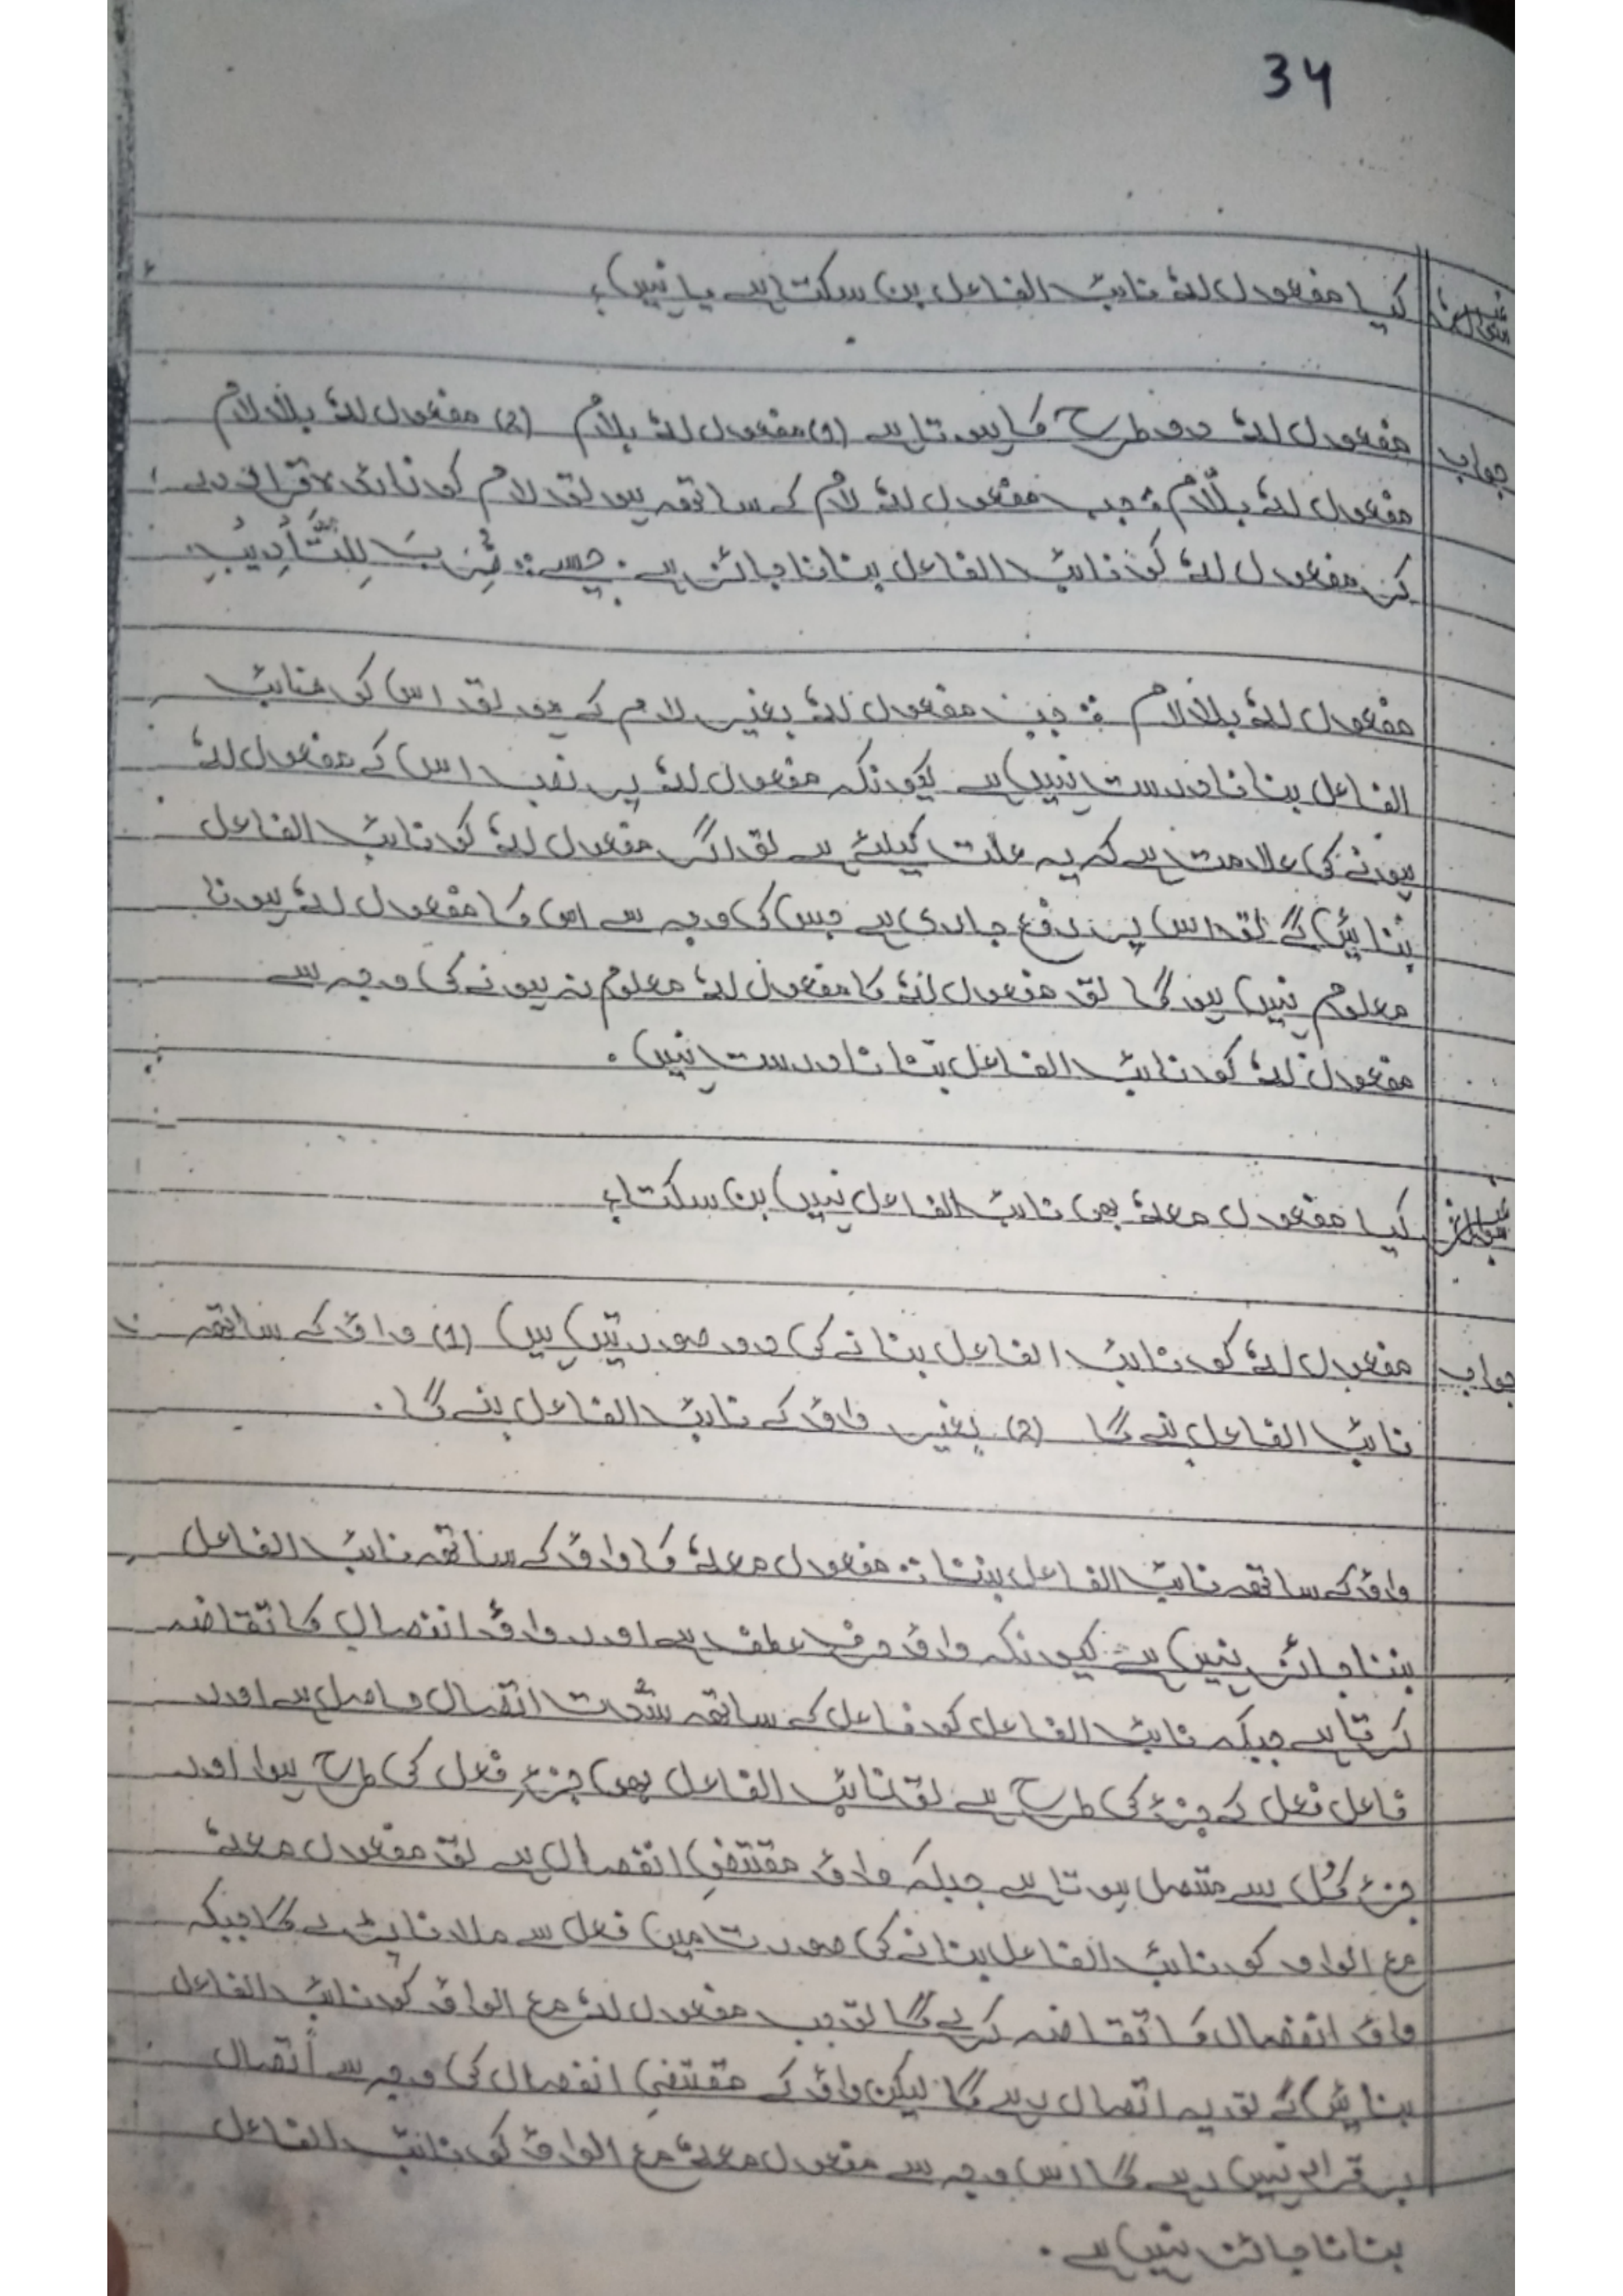 34
کیا مفعول لہٗ نائب الفاعل بن سکتا ہے یا نہیں؟
جواب مفعول لہٗ دو طرح کا ہوتا ہے (1) مفعول لہٗ بلام (2) مفعول لہٗ بلالام
مفعول لہٗ بلّام : جب مفعول لہٗ لام کے ساتھ ہو تو لام کو زائدہ قرار دے
کر مفعول لہٗ کو نائب الفاعل بنانا جائز ہے۔ جیسے: ضُرِبَ لِلتَّأدِیْبِ
مفعول لہٗ بلالام : جب مفعول لہٗ بغیر لام کے ہو تو اس کو نائب
الفاعل بنانا درست نہیں ہے کیونکہ مفعول لہٗ پر نصب اس کے مفعول لہٗ
ہونے کی علامت ہے کہ یہ علت کیلئے ہے تو اگر مفعول لہٗ کو نائب الفاعل
بنائیں گے تو اس پر رفع جاری ہے جس کی وجہ سے اس کا مفعول لہٗ ہونا
معلوم نہیں ہو گا تو مفعول لہٗ کا مفعول لہٗ معلوم نہ ہونے کی وجہ سے
مفعول لہٗ کو نائب الفاعل بنانا درست نہیں۔
کیا مفعول معہٗ بھی نائب الفاعل نہیں بن سکتا؟
جواب مفعول لہٗ کو نائب الفاعل بنانے کی دو صورتیں ہیں (1) واؤ کے ساتھ
نائب الفاعل بنے گا (2) بغیر واؤ کے نائب الفاعل بنے گا۔
واؤ کے ساتھ نائب الفاعل بننا : مفعول معہٗ کا واؤ کے ساتھ نائب الفاعل
بننا جائز نہیں ہے کیونکہ واؤ حرف عطف ہے اور واؤ انفصال کا تقاضہ
کرتا ہے جبکہ نائب الفاعل کو فاعل کے ساتھ شدت اتصال حاصل ہے اور
فاعل فعل کے جزء کی طرح ہے تو نائب الفاعل بھی جزءِ فعل کی طرح ہوا اور
جزء کُل سے متصل ہوتا ہے جبکہ واؤ مقتضیِ انفصال ہے تو مفعول معہٗ
مع الواو کو نائب الفاعل بنانے کی صورت میں فعل سے ملانا پڑے گا جبکہ
واؤ انفصال کا تقاضہ کرے گا تو جب مفعول لہٗ مع الواؤ کو نائب الفاعل
بنائیں گے تو یہ اتصال رہے گا لیکن واؤ کے مقتضیِ انفصال کی وجہ سے اتصال
برقرار نہیں رہے گا اس وجہ سے مفعول معہٗ مع الواؤ کو نائب الفاعل
بنانا جائز نہیں ہے۔